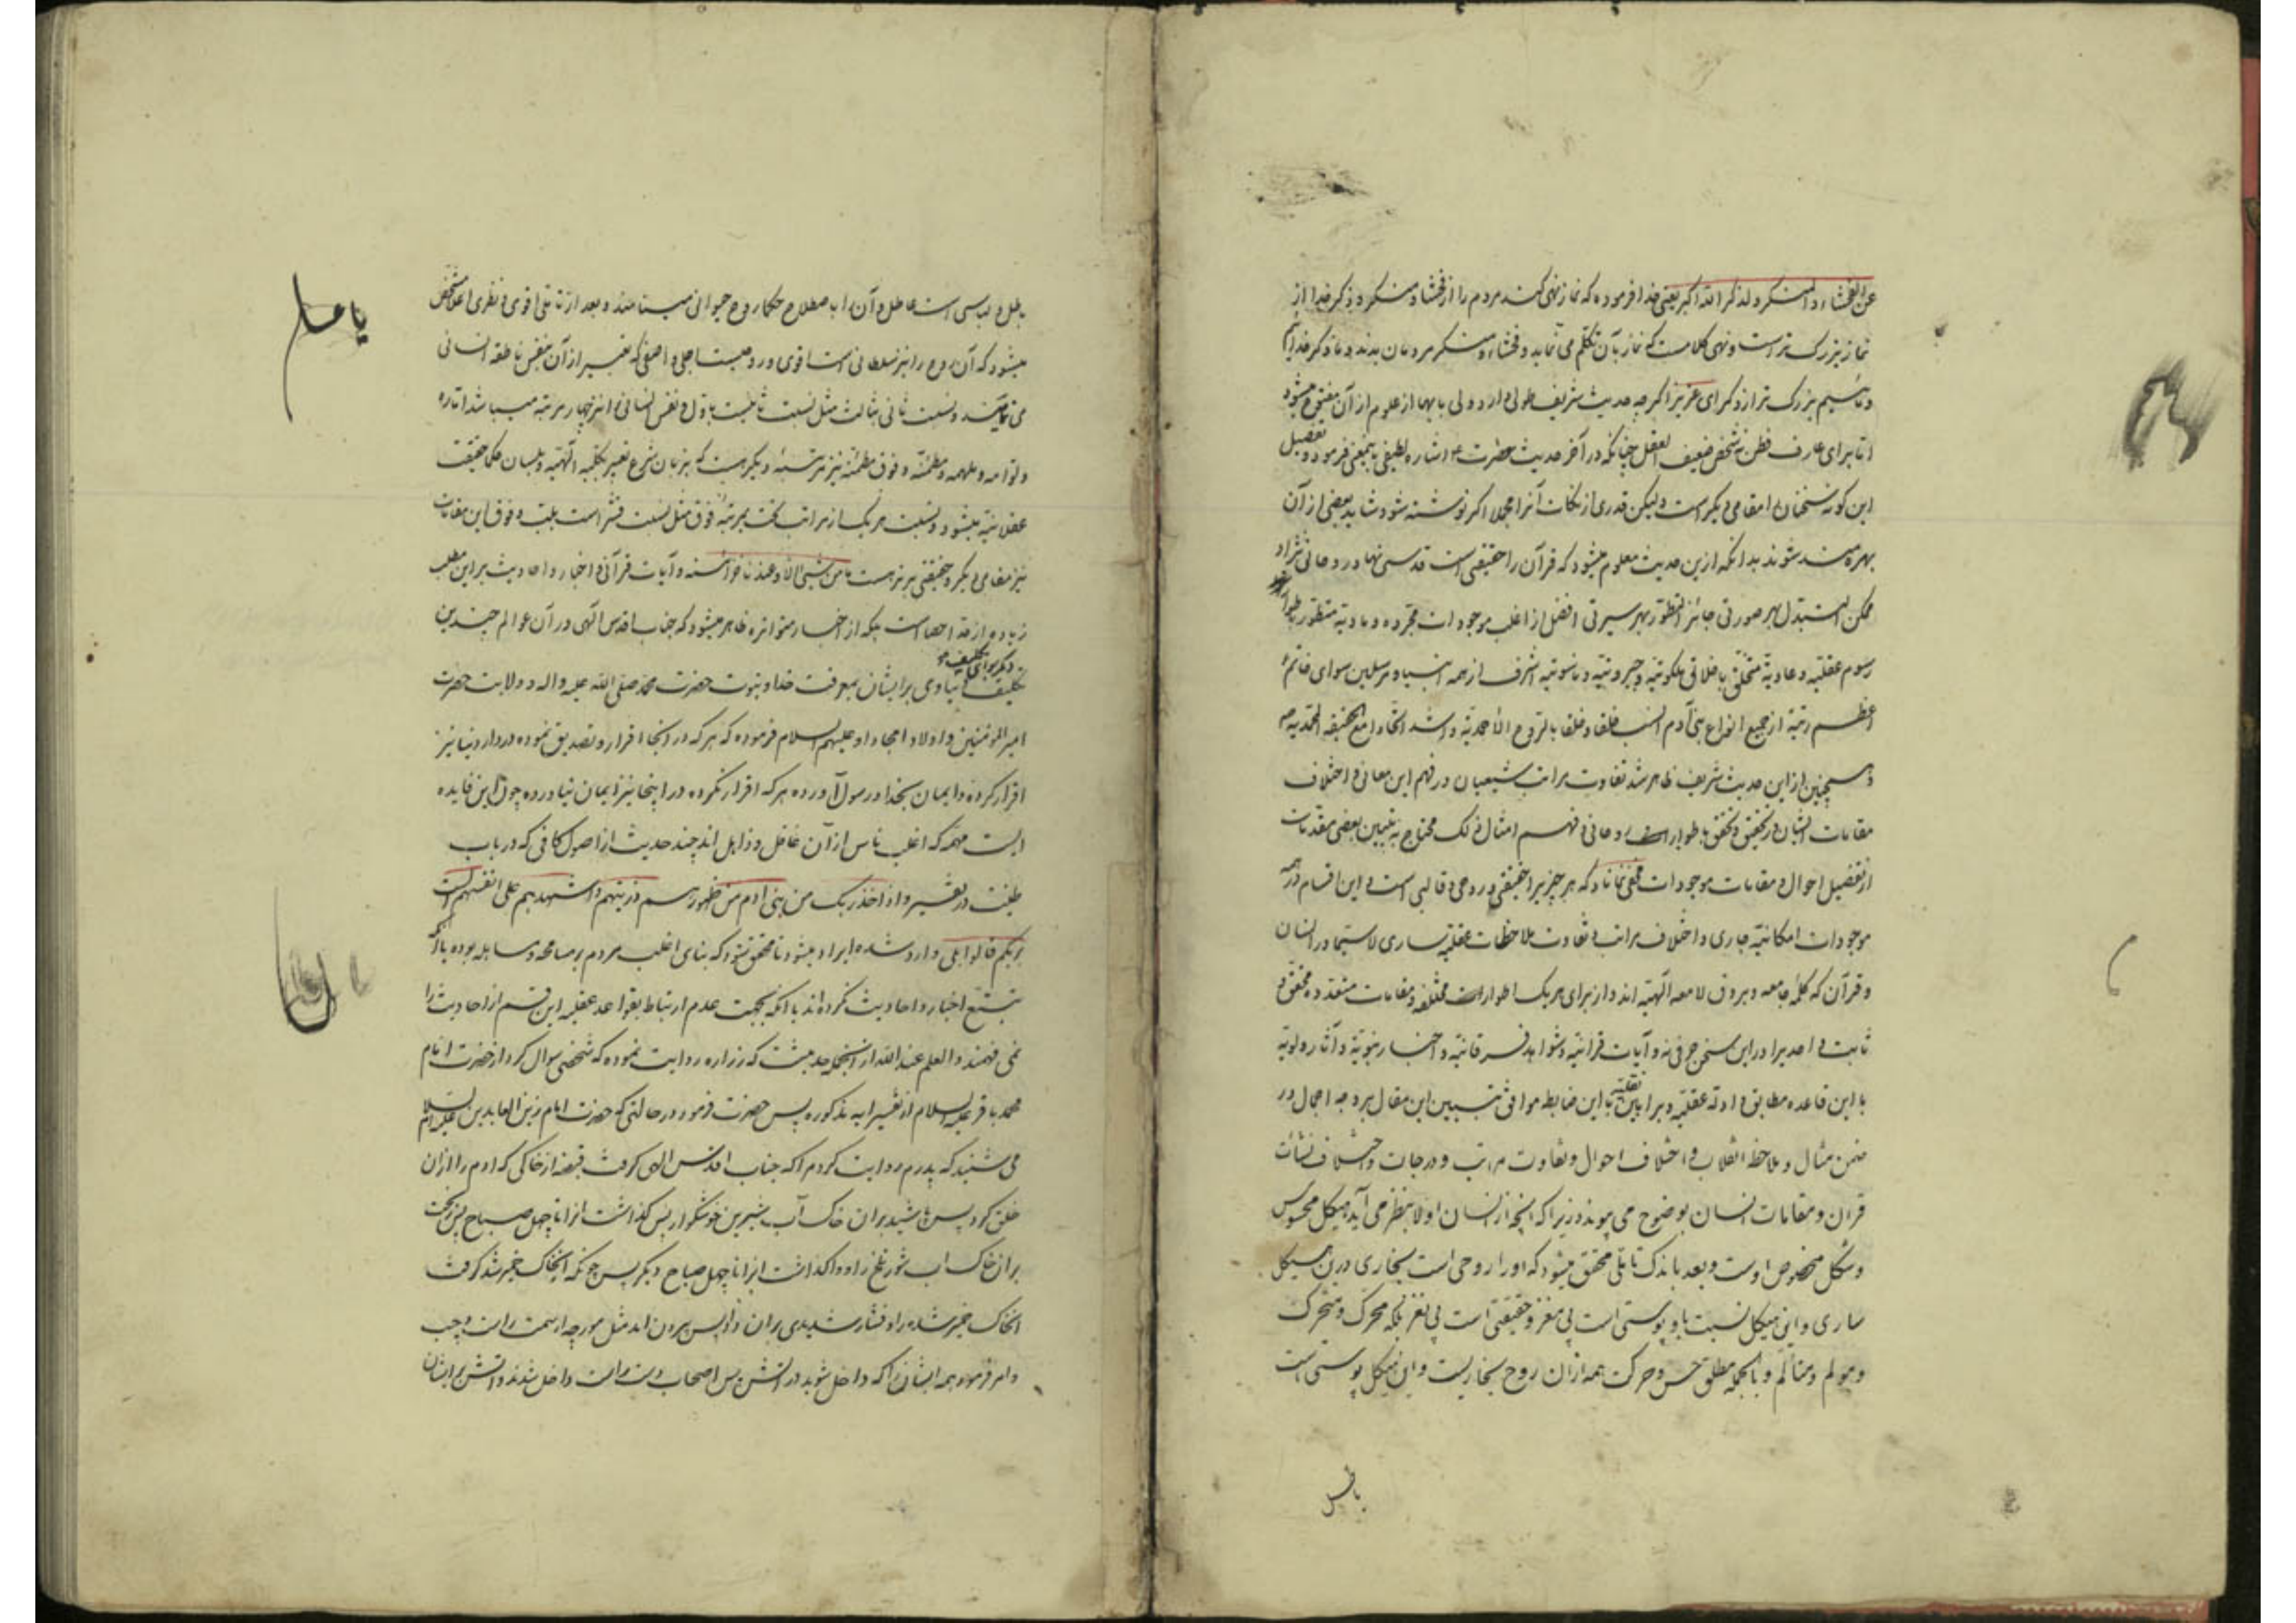 عن الفحشاء و المنکر و لذکر الله اکبر یعنی خدا فرموده که نماز نهی کند مردم را از فحشا و منکر و ذکر خدا از
نماز بزرک تر است و نهی کلامست که نماز بآن تکلم می نماید و فحشاء و منکر مردمان بدند و ما ذکر خدائیم
و مائیم بزرک تر از ذکر ای عزیز اکرچه حدیث شریف طولی دارد ولی بابها از علوم از آن مفتوح میشود
اما برای عارف فطن نه شخص ضعیف العقل چنانکه در آخر حدیث حضرت اشاره لطیفی باینمعنی فرمود و تفصیل
این کونه سخنان را مقامی دیکر است ولیکن قدری از نکات آنرا مجملا اکر نوشته شود شاید بعضی از آن
بهره مند شوند بدانکه ازین حدیث معلوم میشود که قرآن را حقیقتی است قدسی نهاد روحانی نژاد
ممکن التبدل بهر صورتی جائز التطور بهر سیرتی افضل از اغلب موجودات مجرده و مادیه متطور بطوار
رسوم عقلیه و عادیه متخلق باخلاقی ملکوتیه و جبروتیه و ناسوتیه اشرف از همه انبیاء و مرسلین سوای خاتم
اعظم رتبة از جمیع انواع بنی آدم انسب خلقا و خلقا بالروح الاحمدیة و اشد اتحادا مع الحقیقه المحمدیه
و همچنین از این حدیث شریف ظاهر شد تفاوت مراتب شیعیان در فهم این معانی و اختلاف
مقامات ایشان در تحقیق و تحقق باطوار روحانی و فهم امثال ذلک محتاج به تبیین بعضی مقدمات
از تفصیل احوال و مقامات موجودات مخفی نماناد که هر چیز را حقیقتی و روحی و قالبی است و این اقسام در همه
موجودات امکانیه جاری و اختلاف مراتب و تفاوت ملاحظات عقلیه ساری لاسیما در انسان
و قرآن که کلمه جامعه و بروق لامعه الهیه اند و از برای هر یک اطوارات مختلفه و مقامات متعدده محقق و
ثابت و احدیرا در این سخن حرفی نه و آیات قرانیه و شواهد فرقانیه و اخبار نبویة و آثار ولویة
با این قاعده مطابق و ادله عقلیه و براهین نقلیه با این ضابط موافق تبیین این مقال بر وجه اجمال در
ضمن مثال و ملاحظه انقلاب و اختلاف احوال و تفاوت مراتب و درجات و اختلاف نشآت
قران و مقامات انسان بوضوح می پیوندد زیرا که آنچه از انسان اولا بنظر می آید هیکل محسوس
و شکل مخصوص اوست و بعد باندک تاملی محقق میشود که او را روحی است بخاری درین هیکل
ساری و این هیکل نسبت باو پوستی است بی مغز و حقیقتی است بی نغز بلکه محرک و متحرک
و مولم و متألم و بالجمله مطلق حس و حرکت همه ازان روح بخاریست و این هیکل پوستی است
باطل
باطل و لباسی است عاطل و آن را باصطلاح حکما روح حیوانی مینامند و بعد از تاملی اقوی و نظری اعلا مشخص
میشود که آن روح را نیز سلطانی است اقوی و روحیست اجلی و اصفی که تعبیر از آن بنفس ناطقه انسانی
می نمایند و نسبت ثانی بثالث مثل نسبت ثانیست باول و نفس انسانی را نیز چهار مرتبه میباشد اماره
و لوامه و ملهمه و مطمئنه و فوق مطمئنه نیز مرتبه دیکریست که بزبان شرع تعبیر بکلمه الهیه و بلسان حکما حقیقت
عقلانیه میشود و نسبت هر یک از مراتب تحت بمرتبه فوق مثل نسبت قشر است بلب و فوق این مقامات
نیز مقامی دیکر و حقیقتی برتر هست ما من شیئ الا و عندنا خزائنه و آیات قرآنی و اخبار و احادیث براین مطلب
زیاده از حد احصاست بلکه از اخبار متواتره ظاهر میشود که جناب اقدس الهی در آن عوالم چندین
دیکر سوای تکلیف
تکلیف دنیاوی برایشان بمعرفت خدا و نبوت حضرت محمد صلی الله علیه و اله و ولایت حضرت
امیر المؤمنین و اولاد امجاد او علیهم السلام فرموده که هر که در آنجا اقرار و تصدیق نموده در دار دنیا نیز
اقرار کرده و ایمان بخدا و رسول آورده هر که اقرار نکرده در اینجا نیز ایمان نیاورده چون این فایده
ایست مهمه که اغلب ناس از آن غافل و ذاهل اند چند حدیث از اصول کافی که در باب
طینت در تفسیر و اذ اخذ ربک من بنی ادم من ظهورهم ذریتهم و اشهدهم علی انفسهم الست
بربکم قالوا بلی وارد شده ایراد میشود تا محقق شود که بنای اغلب مردم بر مسامحه و مساهله بوده یا آنکه
تتبع اخبار و احادیث نکرده اند یا آنکه بجهت عدم ارتباط بقواعد عقلیه این قسم از احادیث را
نمی فهمند و العلم عند الله از انجمله حدیثست که زراره روایت نموده که شخصی سوال کرد از حضرت امام
محمد باقر علیه السلام از تفسیر ایه مذکوره پس حضرت فرمود در حالتی که حضرت امام زین العابدین علیه السلام
می شنید که پدرم روایت کرد مرا که جناب اقدس الهی کرفت قبضه از خاکی که ادم را ازان
خلق کرد پس پاشید بران خاک آب شیرین خوشکوار پس کذاشت انرا تا چهل صباح پس ریخت
بران خاک اب شور تلخ زاد و واکذاشت انرا تا چهل صباح دیکر پس چونکه انخاک خمیر شد کرفت
انخاک خمیر شده را و فشار شدیدی بران داد پس بیرون امد مثل مورچه از سمت راست و چپ
و امر فرمود همه ایشان را که داخل شوید در اتش پس اصحاب دست راست داخل شدند و اتش بر ایشان